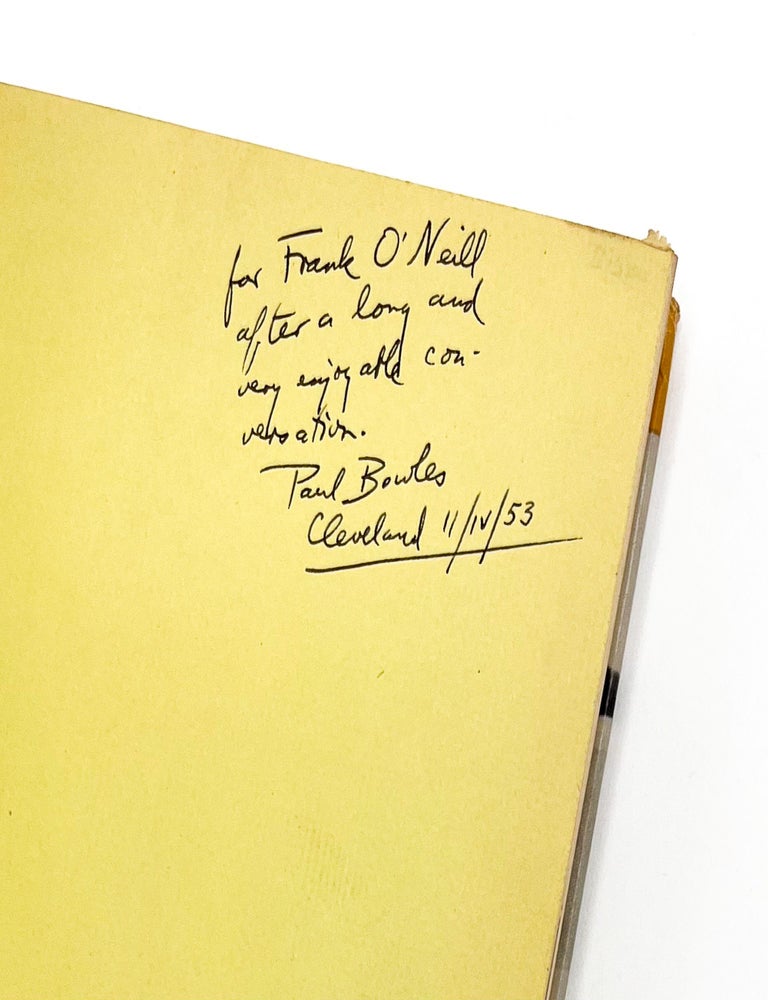 for Frank O'Neill
after a long and
very enjoyable con-
versation.
Paul Bowles
Cleveland 11/IV/53